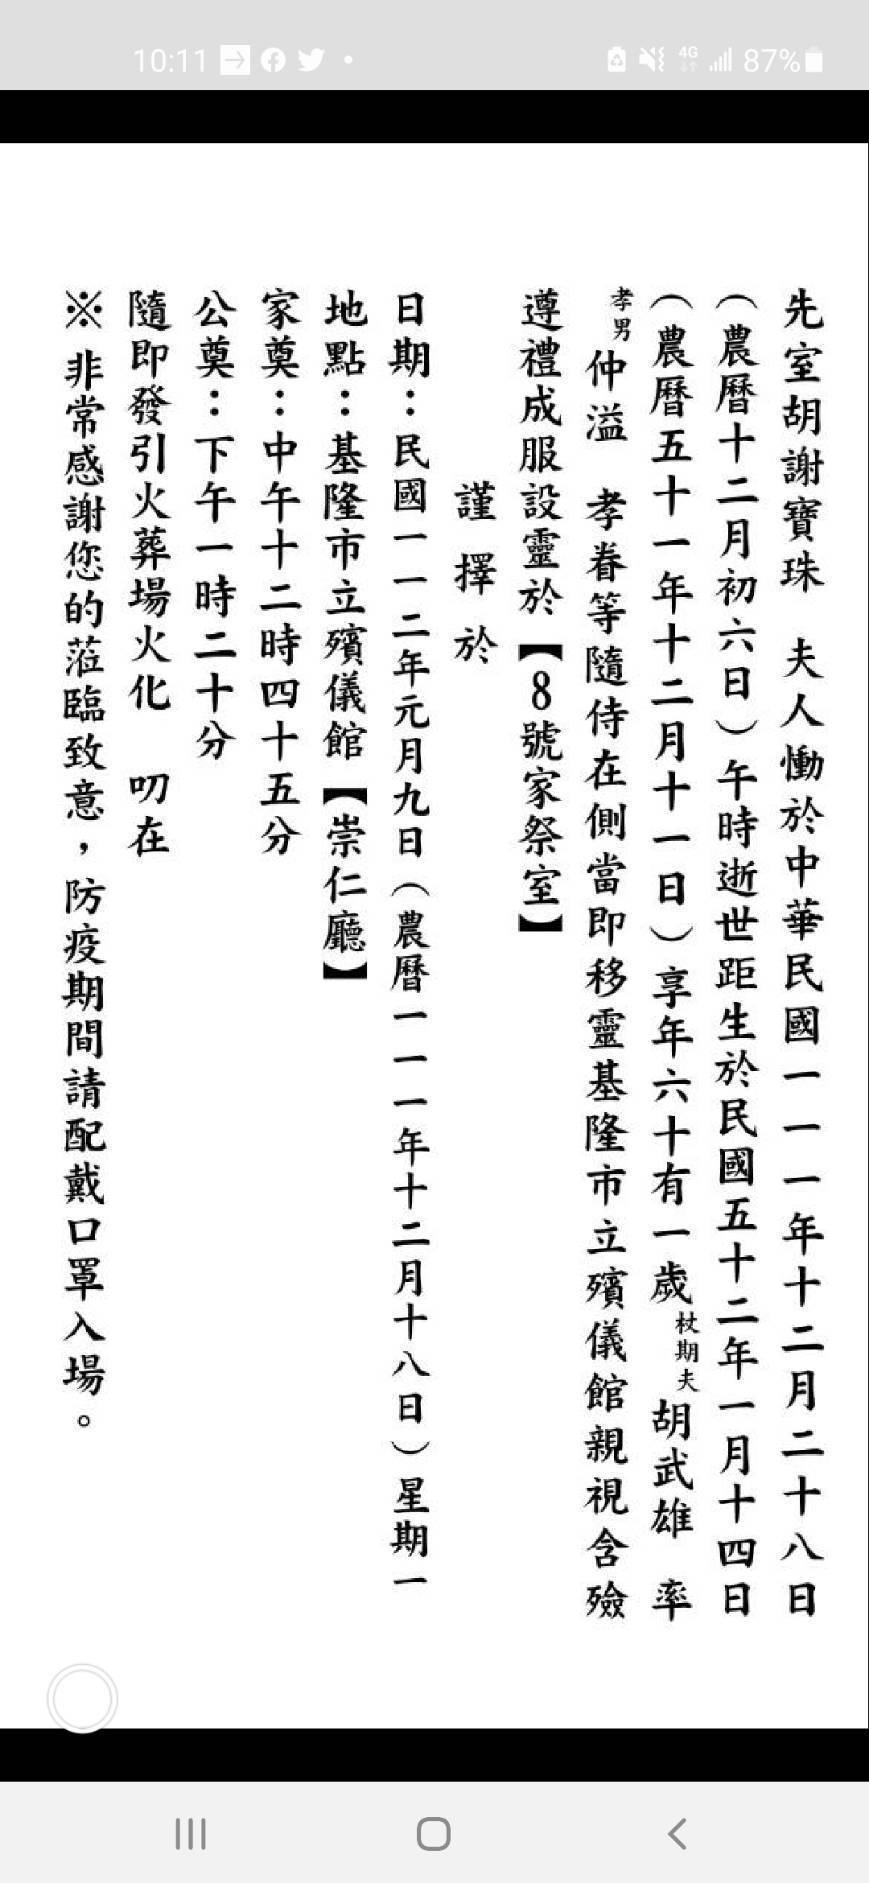 10:11
4G
87%
先室胡謝寶珠 夫人慟於中華民國一一一年十二月二十八日
（農曆十二月初六日）午時逝世距生於民國五十二年一月十四日
（農曆五十一年十二月十一日）享年六十有一歲 杖期夫 胡武雄 率
孝男 仲溢 孝眷等隨侍在側當即移靈基隆市立殯儀館親視含殮
遵禮成服設靈於【8號家祭室】
謹擇於
日期：民國一一二年元月九日（農曆一一一年十二月十八日）星期一
地點：基隆市立殯儀館【崇仁廳】
家奠：中午十二時四十五分
公奠：下午一時二十分
隨即發引火葬場火化 叨在
※非常感謝您的蒞臨致意，防疫期間請配戴口罩入場。